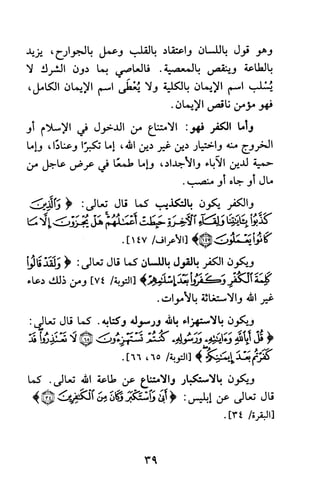 وهو قول باللسان واعتقاد بالقلب وعمل بالجوارح، يزيد
بالطاعة وينقص بالمعصية. فالعاصي بما دون الشرك لا
يُسْلب اسم الإيمان بالكلية ولا يُعْطَى اسم الإيمان الكامل،
فهو مؤمن ناقص الإيمان.
وأما الكفر فهو: الامتناع من الدخول في الإسلام أو
الخروج منه واختيار دين غير دين الله، إما تكبرًا وعنادًا، وإما
حمية لدين الآباء والأجداد، وإما طمعًا في عرض عاجل من
مال أو جاه أو منصب.
والكفر يكون بالتكذيب كما قال تعالى: ﴿ وَٱلَّذِينَ
كَذَّبُوا۟ بِـَٔايَـٰتِنَا وَلِقَآءِ ٱلْـَٔاخِرَةِ حَبِطَتْ أَعْمَـٰلُهُمْ هَلْ يُجْزَوْنَ إِلَّا مَا
كَانُوا۟ يَعْمَلُونَ ١٤٧ ﴾ [الأعراف/ ١٤٧].
ويكون الكفر بالقول باللسان كما قال تعالى: ﴿ وَلَقَدْ قَالُوا۟
كَلِمَةَ ٱلْكُفْرِ وَكَفَرُوا۟ بَعْدَ إِسْلَـٰمِهِمْ ﴾ [التوبة/ ٧٤] ومن ذلك دعاء
غير الله والاستغاثة بالأموات.
ويكون بالاستهزاء بالله ورسوله وكتابه. كما قال تعالى:
﴿ قُلْ أَبِٱللَّهِ وَءَايَـٰتِهِۦ وَرَسُولِهِۦ كُنتُمْ تَسْتَهْزِءُونَ ٦٥ لَا تَعْتَذِرُوا۟ قَدْ
كَفَرْتُم بَعْدَ إِيمَـٰنِكُمْ ﴾ [التوبة/ ٦٥، ٦٦].
ويكون بالاستكبار والامتناع عن طاعة الله تعالى. كما
قال تعالى عن إبليس: ﴿ أَبَىٰ وَٱسْتَكْبَرَ وَكَانَ مِنَ ٱلْكَـٰفِرِينَ ٣٤ ﴾
[البقرة/ ٣٤].
٣٩